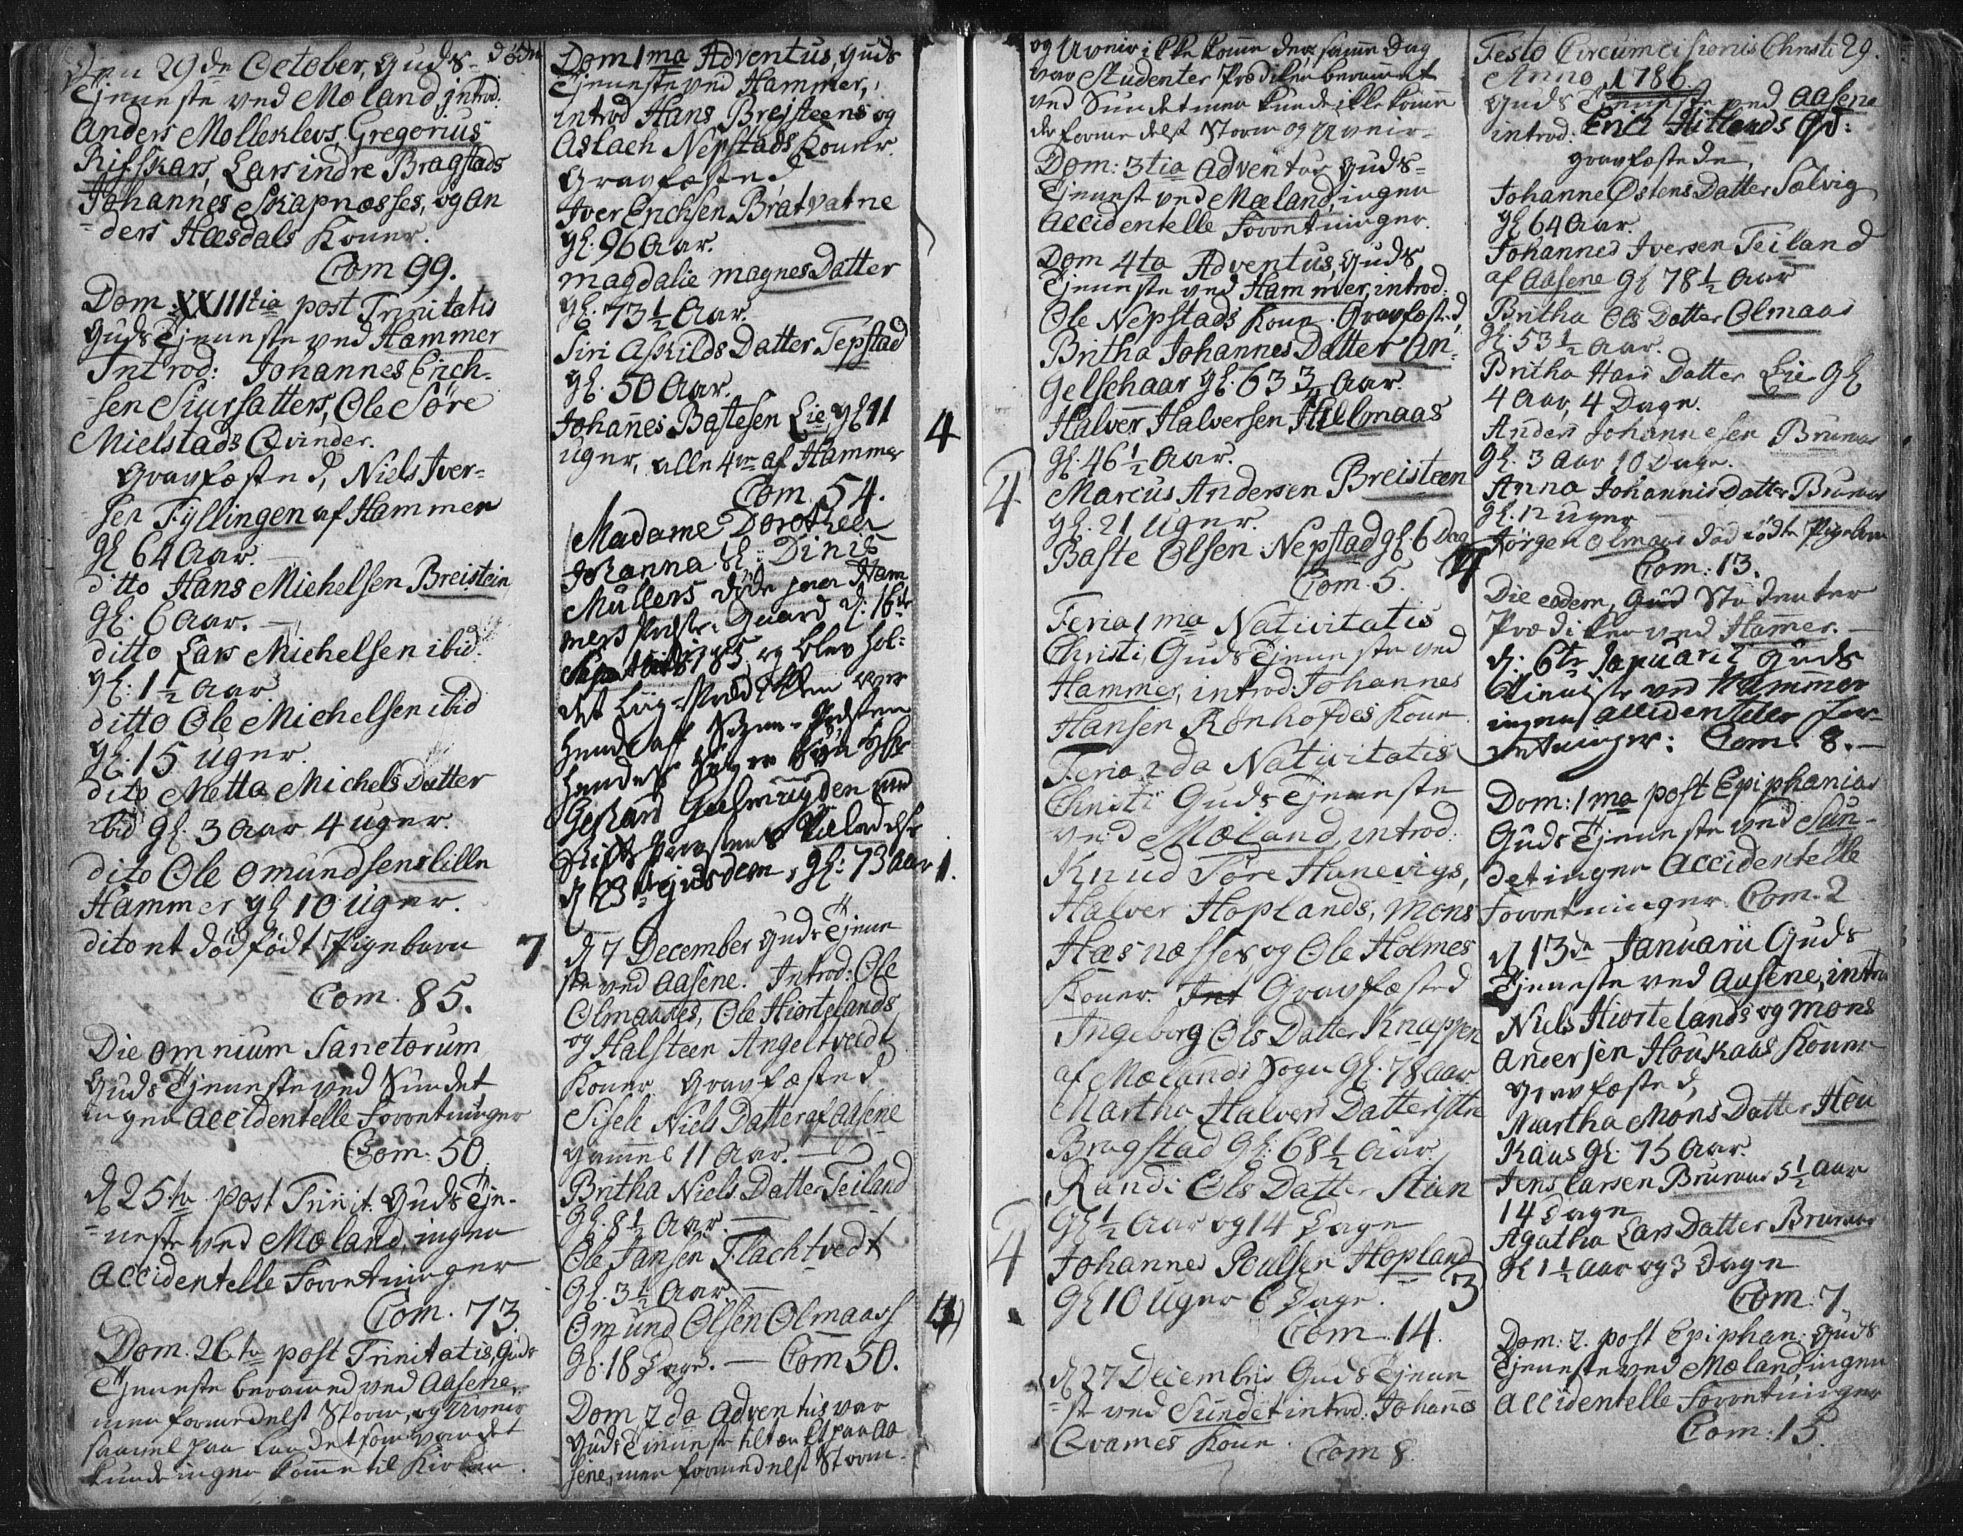 Den 29de October, Guds-
Tjeneste ved Mæland introd:
Anders Mollerklevs, Gregorius
Rifskars, Lars indre Bragstads
Johannes Skapnæsses, og An
-ders Hæsdals Koner.
Com 99.
Dom XXIIItia post Trinitatis
Guds Tjeneste ved Hammer
Introd: Johannes Erich-
-sen Siursatters, Ole Søre
Mielstads Qvinder.
Gravfæsted, Niels Iver-
sen Fyllingen af Hammer
gl 64 Aar.
ditto Hans Michelsen Breistein
gl: 6 Aar.
ditto Lars Michelsen ibid:
gl: 1½ Aar
ditto Ole Michelsen ibid
gl: 15 uger.
dito Metta Michels Datter
ibid gl. 3 Aar 4 uger.
dito Ole Omundsen lille
Hammer gl 10 uger.
dito et dödfödt Pigebarn 7
Com. 85.
Die omnium Sanctorum
Guds Tjeneste ved Sundet
ingen accidentelle Forretninger
Com. 50.
d 25te post Trinit. Guds Tje-
-neste ved Mæland, ingen
accidentelle Forretninger
Com. 73.
Dom. 26te post Trinitatis, Guds
Tjeneste berammed ved Aasene,
men formedelst Storm, og Uveir
saavel paa Landet som Vandet
kunde ingen komme til Kirken.
Dom 1ma Adventus, Guds
Tjeneste ved Hammer,
introd Hans Brejsteens og
Aslach Nepstads Koner.
Gravfæsted
Iver Erichsen Bratvatne
gl. 96 Aar.
Magdalie Magnes Datter
gl. 73½ Aar.
Siri Askilds Datter Tepstad
gl. 50 Aar.
Johañes Bastesen Lie, gl 11
uger, alle 4re af Hammer 4
Com. 54.
Madame Dorothea
Johanna
Müllers döde paa Ham
mers Præste-Gaard d: 16de
1785, og blev hol-
det Liig-Prædiken over
hende aff
hendes
Gerhard Geelmuyden med
Stifts Provstens Tilladelse
d 23de ejusdem, gl: 73 Aar 1.
d 7 December Guds Tjene
ste ved Aasene. Introd: Ole
Olmaases, Ole Hiortelands
og Halsteen Angeltveedt
Koner Gravfæsted
Siseli Niels Datter af Aasene
gammel 11 Aar.
Britha Niels Datter Teiland
gl. 8½ Aar.
Ole Jansen Flachtvedt
gl. 3½ Aar.
Omund Olsen Olmaass
gl. 18 Dage. — Com 50.
Dom 2da Adventus var
Guds Tjeneste tiltænkt paa Aa
sene, men formedelst Storm-
og Uveir ikke kom, den samme Dag
var Studenter Prædiken berammet
ved Sundet men kunde ikke komme
der formedelst Storm og Uveir-
Dom: 3tia Adventus Guds-
Tjenest ved Mæland, ingen
accidentelle Forretninger.
Dom 4ta Adventus, Guds
Tjeneste ved Hammer, introd:
Ole Nepstads Kone. Gravfæsted,
Britha Johannes Datter An-
gelschaar gl. 63 Aar.
Halver Halversen Hillmaas
gl. 46½ Aar.
4 Marcus Andersen Breisteen
gl. 21 uger.
Baste Olsen Nepstad gl 6 Dag
Com. 5. 4
Feria 1ma Nativitatis
Christi, Guds Tjeneste ved
Hammer, introd Johannes
Hansen Rønhofdes Kone
Feria 2da Nativitatis
Christi Guds Tjeneste
ved Mæland, introd.
Knud Søre Hanevigs,
Halver Hoplands, Mons
Hæsnæsses og Ole Holmes
Koner. Int Gravfæsted
Ingeborg Ols Datter Knappen
af Mælands Sogn gl. 78 Aar.
Martha Halvers Datter
Bragstad gl. 68½ Aar.
Randi Ols Datter
gl ½ Aar og 14 Dage
4 Johannes Poulsen Hopland
gl 10 uger 6 Dage. 3
Com. 14.
d 27 Decembris Guds Tjene
-ste ved Sundet introd. Johanes
Qvames Kone. Com 8.
Festo Circumcisionis Christi 29.
Anno 1786
Guds Tjeneste ved Aasene
introd. Erich Hillands
gravfæstede,
Johanne Østens Datter Sælvig
gl 64 Aar.
Johannes Iversen Teiland
af Aasene gl 78½ Aar
Britha Ols Datter Olmaas
gl. 53½ Aar.
Britha Hans Datter Lie gl
4 Aar, 4 Dage.
Anders Johannesen Bruraas
gl. 3 Aar 10 Dage.
Anna Johannis Datter Bruraas
gl. 12 uger
Jörgen Olmaas dödfödt Pigebarn
Com: 13.
Die eodem, Gud Studenter
Prædiken ved Hamer.
d: 6te Januarii Guds
Tieniste ved Hammer
ingen accidentelle for-
retninger: Com. 8.—
Dom: 1ma post Epiphanias
Guds Tjeneste ved Sun-
det ingen accidentelle
Forretninger. Com. 2
d 13de Januarii Guds
Tjeneste ved Aasene, introd
Niels Hiortelands og Mons
Andersen Houkaas Koner
Gravfæsted,
Martha Mons Datter Hou
kaas gl. 75 Aar.
Jens Larsen Bruraas 5½ Aar
14 Dage
Agatha Lars Datter Bruraas
gl 1½ Aar og 3 Dage
Com. 7.
Dom: 2. post Epiphan: Guds
Tjeneste ved Mæland, ingen
accidentelle Forretninger
Com: 15.